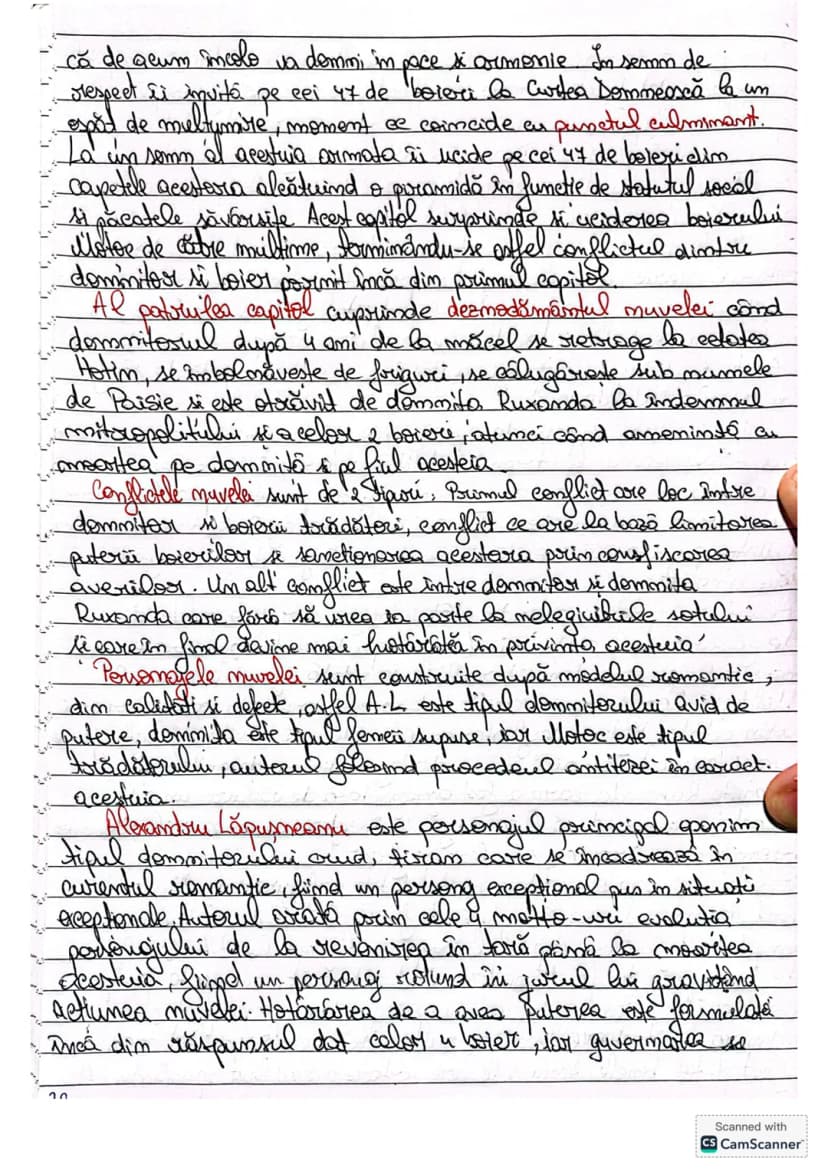 că de acum încolo va domni în pace și armonie. În semn de
respect îi invită pe cei 47 de boieri la Curtea Domnească la un
ospăț de mulțumire, moment ce coincide cu punctul culminant.
La un semn al acestuia armata îi ucide pe cei 47 de boieri din
capetele acestora alcătuind o piramidă în funcție de statutul social
și păcatele săvârșite. Acest capitol surprinde și uciderea boierului
Moțoc de către mulțime, terminându-se astfel conflictul dintre
domnitor și boier pornit încă din primul capitol.
Al patrulea capitol cuprinde deznodământul nuvelei când
domnitorul după 4 ani de la măcel se retrage la cetatea
Hotin, se îmbolnăvește de friguri, se călugărește sub numele
de Paisie și este otrăvit de domnița Ruxanda la îndemnul
mitropolitului și a celor 2 boieri, atunci când amenință cu
moartea pe domniță și pe fiul acesteia.
Conflictele nuvelei sunt de 2 tipuri, Primul conflict are loc între
domnitor și boierii trădători, conflict ce are la bază limitarea
puterii boierilor și sancționarea acestora prin consfiscarea
averilor. Un alt conflict este între domnitor și domnița
Ruxanda care fără să vrea ia parte la nelegiuirile soțului
și care în final devine mai hotărâtă în privința acestuia
Personajele nuvelei sunt construite după modelul romantic,
din calități și defect, astfel A.L este tipul domnitorului avid de
putere, domnița este tipul femeii supuse, iar Moțoc este tipul
trădătorului, autorul folosind procedeul antitezei în caract.
acestuia.
Alexandru Lăpușneanu este personajul principal eponim
tipul domnitorului crud, tiran care se încadrează în
curentul romantic, fiind un personaj excepțional pus în situați
excepționale. Autorul arată prin cele 4 motto-uri evoluția
personajului de la revenirea în țară până la moartea
acestuia, fiind un personaj rotund în jurul lui gravitând
acțiunea nuvelei. Hotărârea de a avea puterea este formulată
încă din răspunsul dat celor 4 boier, iar guvernarea se
Scanned with
CS CamScanner